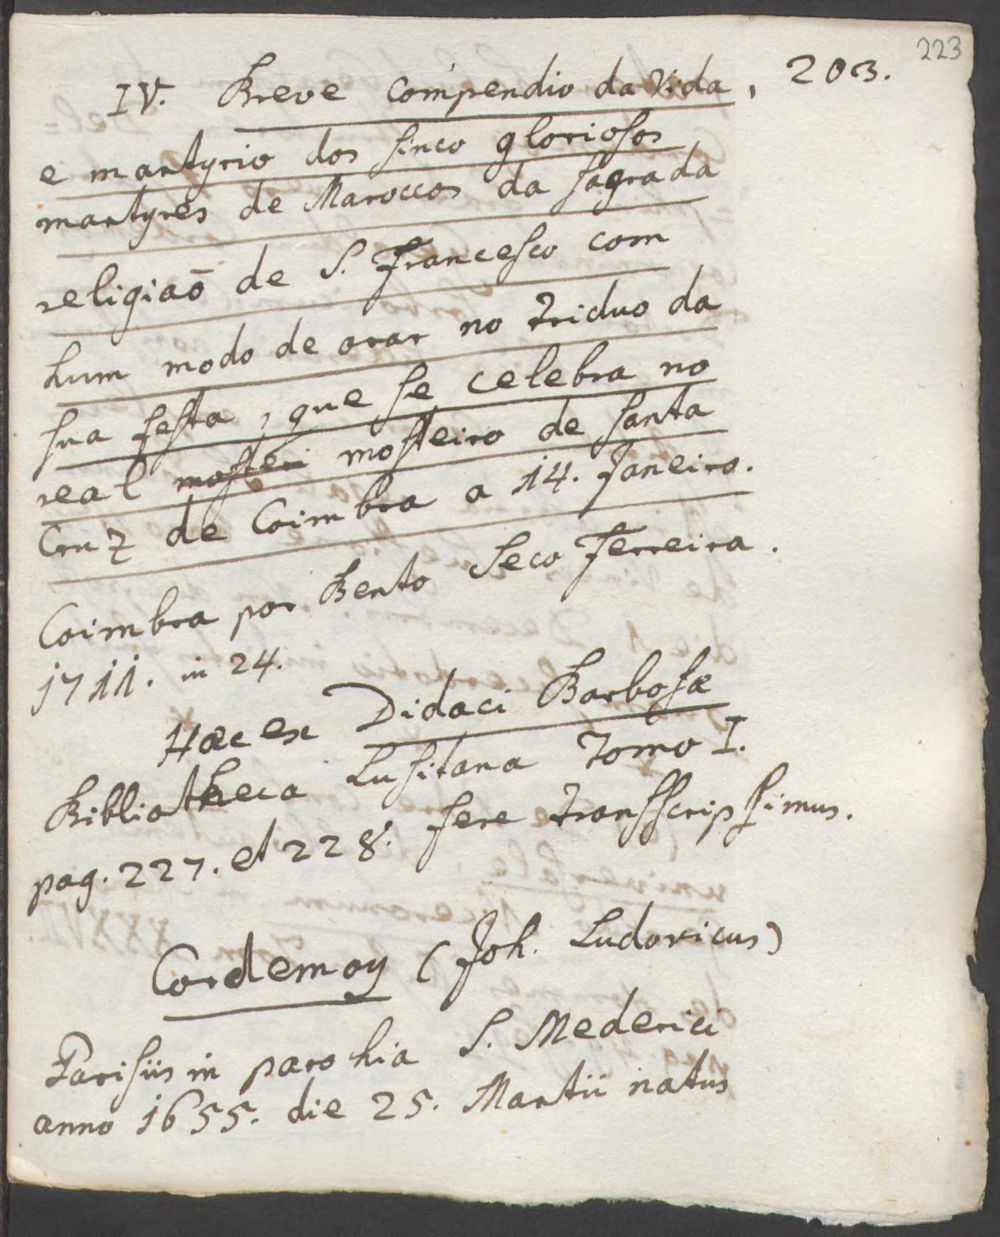 223
IV. Breve compendio da Vida, 203.
e martyrio dos sinco gloriosos
martyres de Maroccos da sagrada
religiaō de S. Francesco com
hum modo de orar no triduo da
sua festa, que se celebra no
real mosteri mosteiro de santa
Cruz de Coimbra a 14. Janeiro.
Coimbra por Bento Seco Ferreira.
1711. in 24.
Hæc ex Didaci Barbosæ
Bibliatheca Lusitana Tomo I.
pag. 227. et 228. fere transscripsimus.
Cordemoy (Joh. Ludovicus)
Parisiis in parohia S. Mederici
anno 1655. die 25. Martii natus